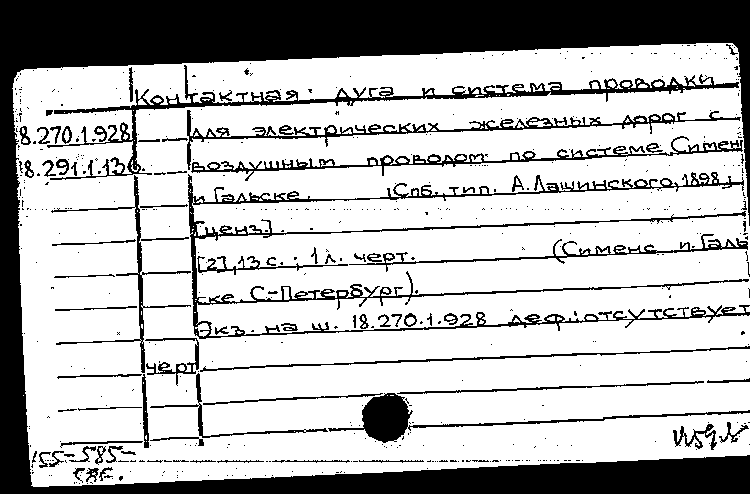 Контактная дуга и система проводки
8.270.1.928 для электрических железных дорог с
8.291.1.136 воздушным проводом по системе Сименс
и Гальске. [Спб., тип. А. Лашинского, 1898,
[ценз.].
[2], 13 с.; 1 л. черт. (Сименс и Галь
ске. С-Петербург).
Экз. на ш. 18.270.1.928 деф.: отсутствует
черт.
155-585-
586.